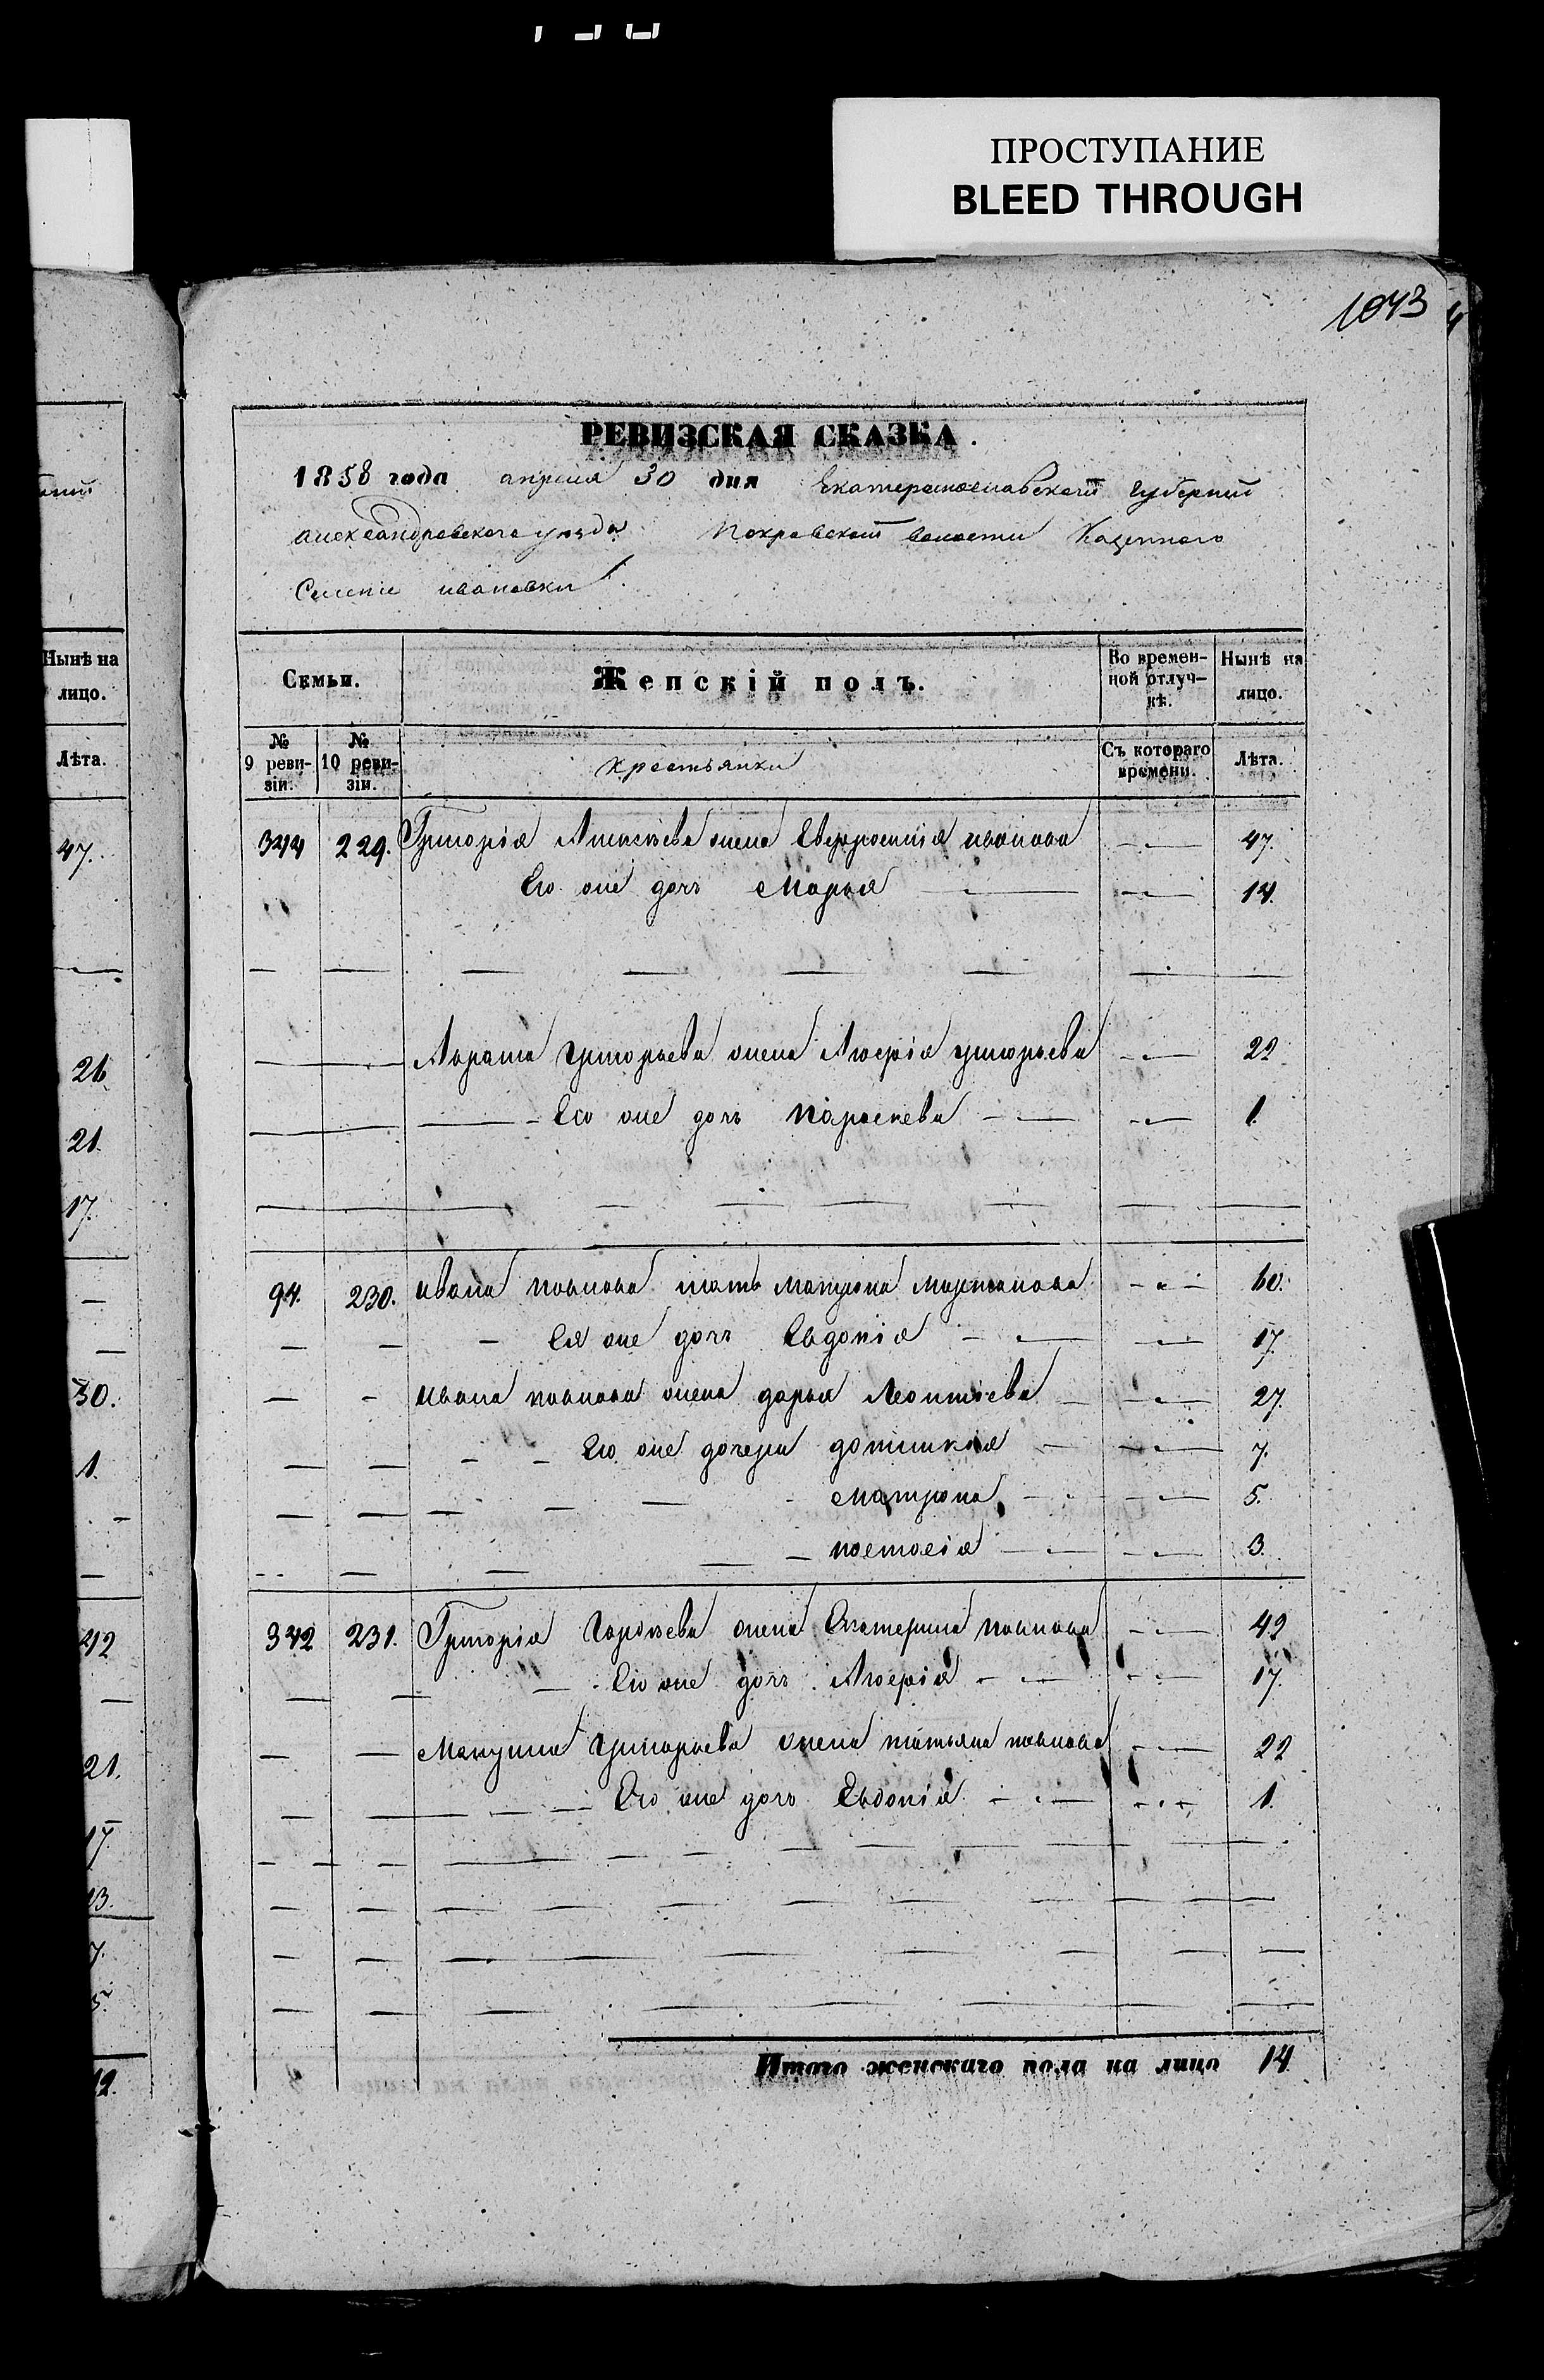 ПРОСТУПАНИЕ
BLEED THROUGH
1043
РЕВИЗСКАЯ СКАЗКА.
1858 года апреля 30 дня Екатеринославской Губернии
Александровского уезда Покровской волости Казенного
Селенiе ивановки
Семьи. Женскій полъ. Во времен-ной отлуч-кѣ. Нынѣ на лицо.
№ 9 реви-зіи. № 10 реви-зіи. крестьянки Съ котораго времени. Лѣта.
344 229. Григорiя жена Евфросинiя иванова 47.
Его же дочь Марья 14.
Григорьева жена григорьева 22
Его же дочь Параскева 1.
94. 230. ивана павлова мать Матрона 60.
Ея же дочь Евдокiя 17.
ивана павлова жена дарья Леонтiева 27.
Его же дочери 7.
Матрона 5.
настасiя 3.
342 231. Григорiя жена Екатерина павлова 42
Его же дочь 17.
Григорьева жена татьяна павлова 22
Его же дочь Евдокiя 1.
Итого женскаго пола на лицо 14
Нынѣ на лицо.
Лѣта.
47.
26
21.
17.
30.
1.
42
21.
17
13.
7.
5.
12.